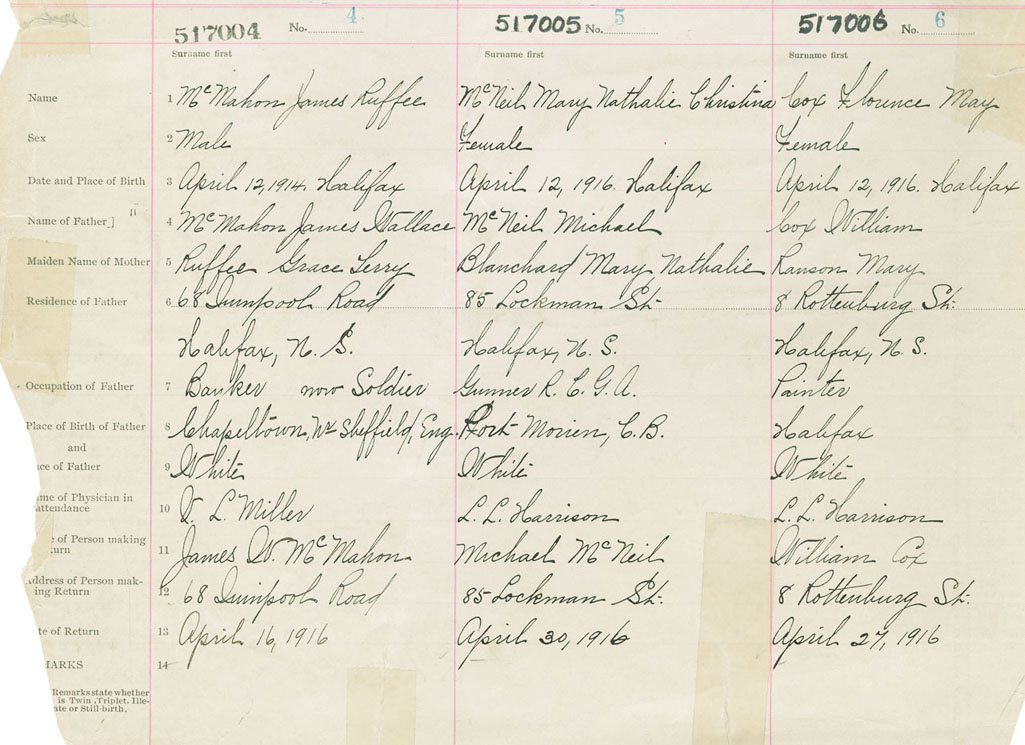 517004 No. 4 517005 No. 5 517006 No. 6
Surname first Surname first Surname first
Name 1 McMahon James Ruffee McNeil Mary Nathalie Christina Cox Florence May
Sex 2 Male Female Female
Date and Place of Birth 3 April 12, 1914. Halifax April 12, 1916. Halifax April 12, 1916. Halifax
Name of Father] 4 McMahon James Wallace McNeil Michael Cox William
Maiden Name of Mother 5 Ruffee Grace Terry Blanchard Mary Nathalie Ranson Mary
Residence of Father 6 68 Quinpool Road 85 Lockman St. 8 Rottenburg St.
Halifax, N. S. Halifax, N. S. Halifax, N. S.
Occupation of Father 7 Banker now Soldier Gunner R. C. G. A. Painter
Place of Birth of Father 8 Chapeltown, Nr Sheffield, Eng. Port Morien, C. B. Halifax
and
ace of Father 9 White White White
me of Physician in
attendance 10 V. L. Miller L. L. Harrison L. L. Harrison
e of Person making
turn 11 James W. McMahon Michael McNeil William Cox
ddress of Person mak-
ing Return 12 68 Quinpool Road 85 Lockman St. 8 Rottenburg St.
te of Return 13 April 16, 1916 April 30, 1916 April 27, 1916
MARKS 14
Remarks state whether
is Twin, Triplet, Ille-
ate or Still-birth.